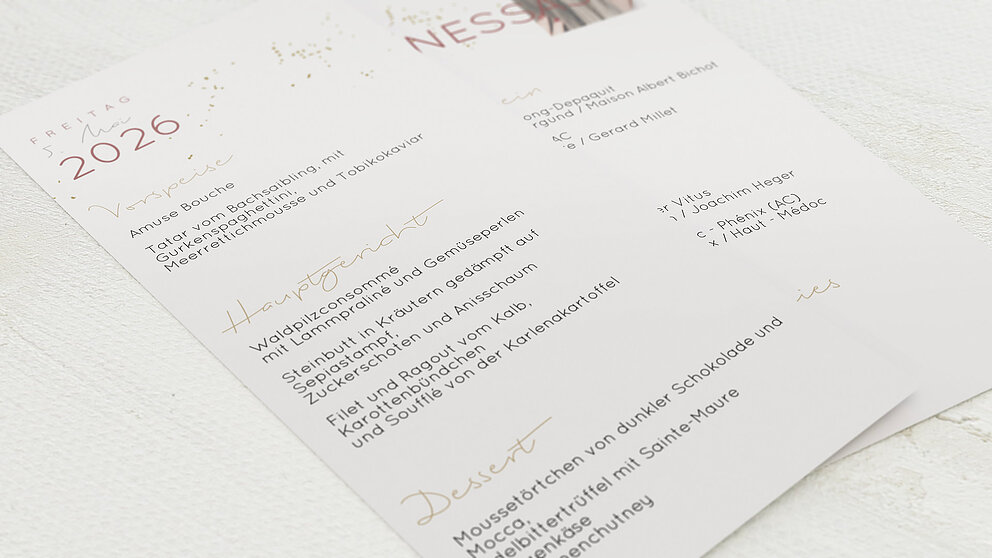 FREITAG
5. Mai
2026
Vorspeise
Amuse Bouche
Tatar vom Bachsaibling, mit
Gurkenspaghettini,
Meerrettichmousse und Tobikokaviar
Hauptgericht
Waldpilzconsommé
mit Lammpraliné und Gemüseperlen
Steinbutt in Kräutern gedämpft auf
Sepiastampf,
Zuckerschoten und Anisschaum
Filet und Ragout vom Kalb,
Karottenbündchen
und Soufflé von der Karlenakartoffel
Dessert
Moussetörtchen von dunkler Schokolade und
Mocca,
delbittertrüffel mit Sainte-Maure
enkäse
enchutney
NESSA
ein
ong-Depaquit
rgund / Maison Albert Bichot
AC
e / Gerard Millet
er Vitus
/ Joachim Heger
c - Phénix (AC)
x / Haut - Médoc
ies